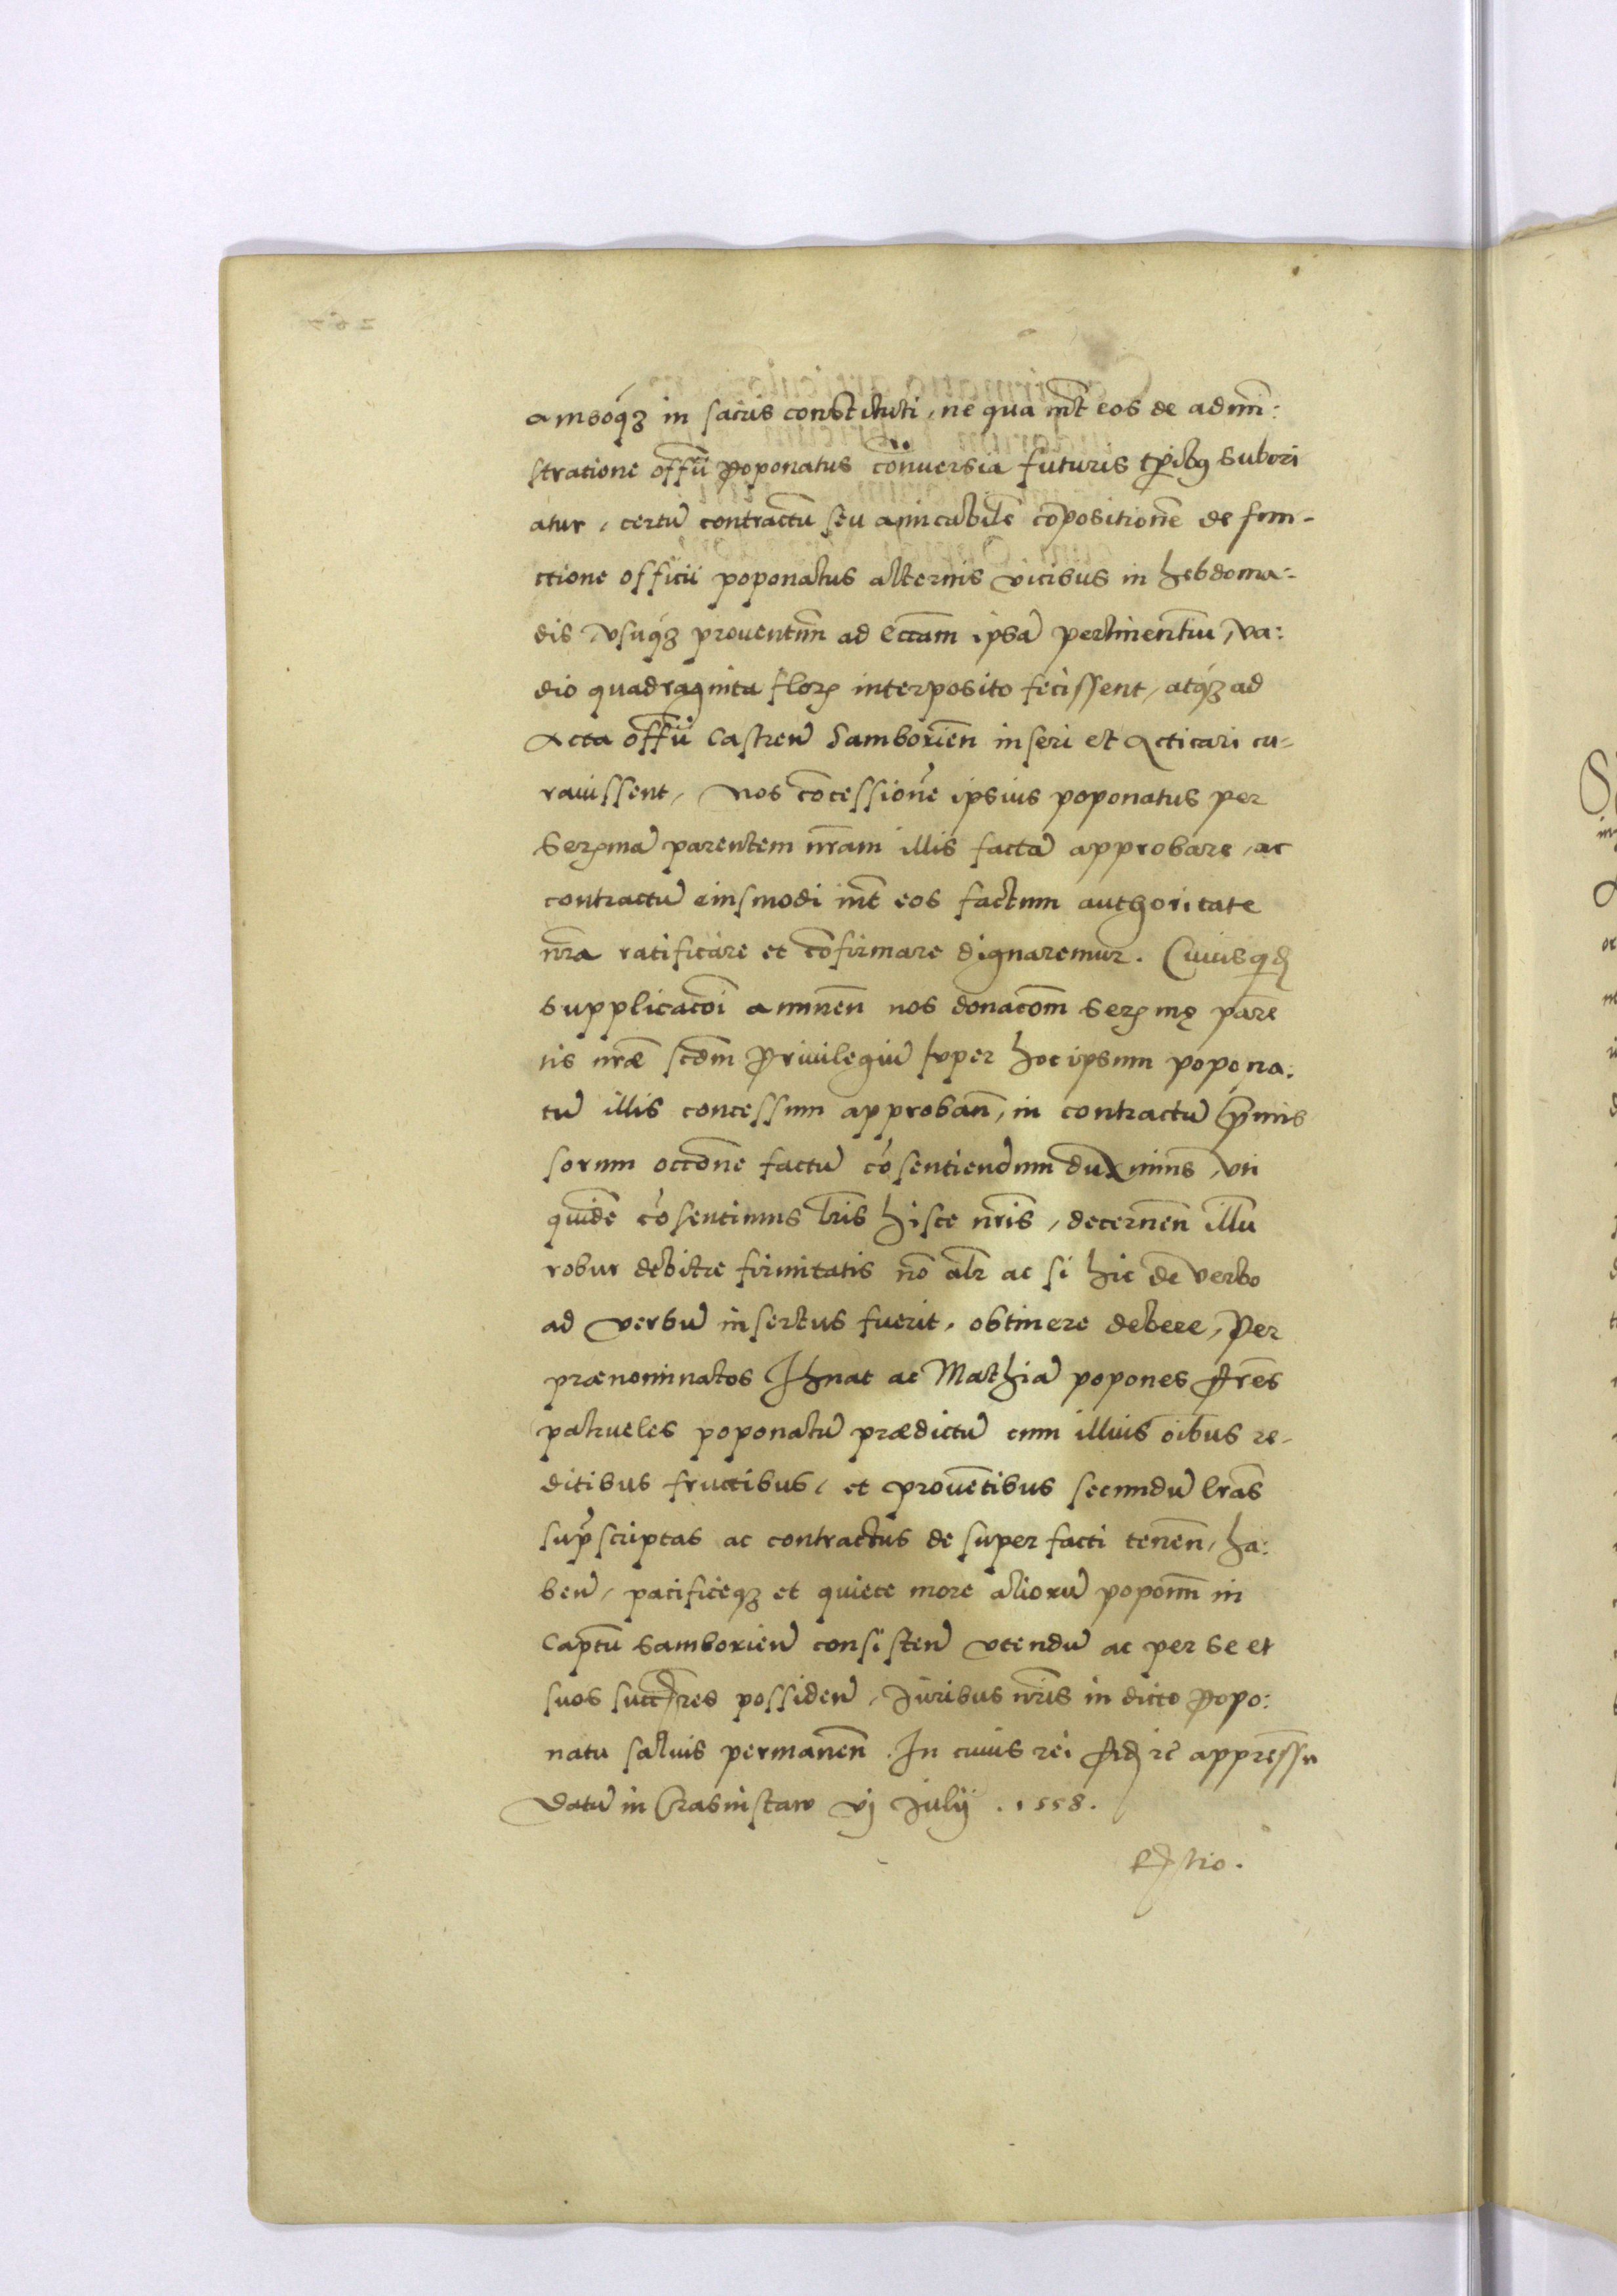 amboq́ꝫ in sacris constituti, ne qua int̄ eos de admi̅ni:
stratione offi̅i poponatus co̅nversia futuris tp̅ibꝰ subori
atur, certu̅ contractu̅ seu amicabile̅ co̅positione̅ de fun-
ctione officii poponatus alternis vicibus in hebdoma:
dis, vsuq́ꝫ proventuu̅ ad Ecc̅am ipsa̅ pertinentiu̅, va:
dio quadraginta floꝝ interposito fecissent, atq́ꝫ ad
Acta offi̅i Castren̅ Samborien̅ inseri et Acticari cu-
ravissent, Nos co̅cessione̅ ipsius poponatus per
Serꝫma̅ parentem nr̅am illis facta̅ approbare, ac
contractu̅ eiusmodi int̅ eos factum authoritate
nr̅a ratificare et co̅firmare dignaremur. Cuiusqd̅
supplicaco̅i annuen̅ nos donaco̅m Serꝫmę pare̅
tis nr̅æ scd̅m Priuilegiu̅ super hoc ipsum popona:
tu̅ illis concessum approban̅, in contractu̅ p̅mis
sorum occ̅one factu̅ co̅sentiendum duximus, vti
quide̅ co̅sentimus lr̅is hisce nr̅is, decernen̅ illu̅
robur debitæ firmitatis no̅ alr̅ ac si hic de verbo
ad verbu̅ insertus fuerit, obtinere debere, Per
prænominatos Ihnat ac Mathia̅ popones fr̅es
patrueles poponatu̅ prædictu̅ cum illius o̅ibus re-
ditibus fructibus, et prove̅tibus secundu̅ lr̅as
sup̅scriptas ac contractus de super facti tenen̅, ha:
ben̅, pacificeqꝫ et quiete more alioru̅ popon̅u̅ in
Captu̅ Samborien̅ consisten̅ vtendu̅ ac per se et
suos succ̅res possiden̅, Iuribus nr̅is in dicto Popo:
natu saluis permanen̅. In cuius rei fid̅ r̅e appre̅ssu̅
Datu̅ in Crasnistaw vj Iulij . 1558.